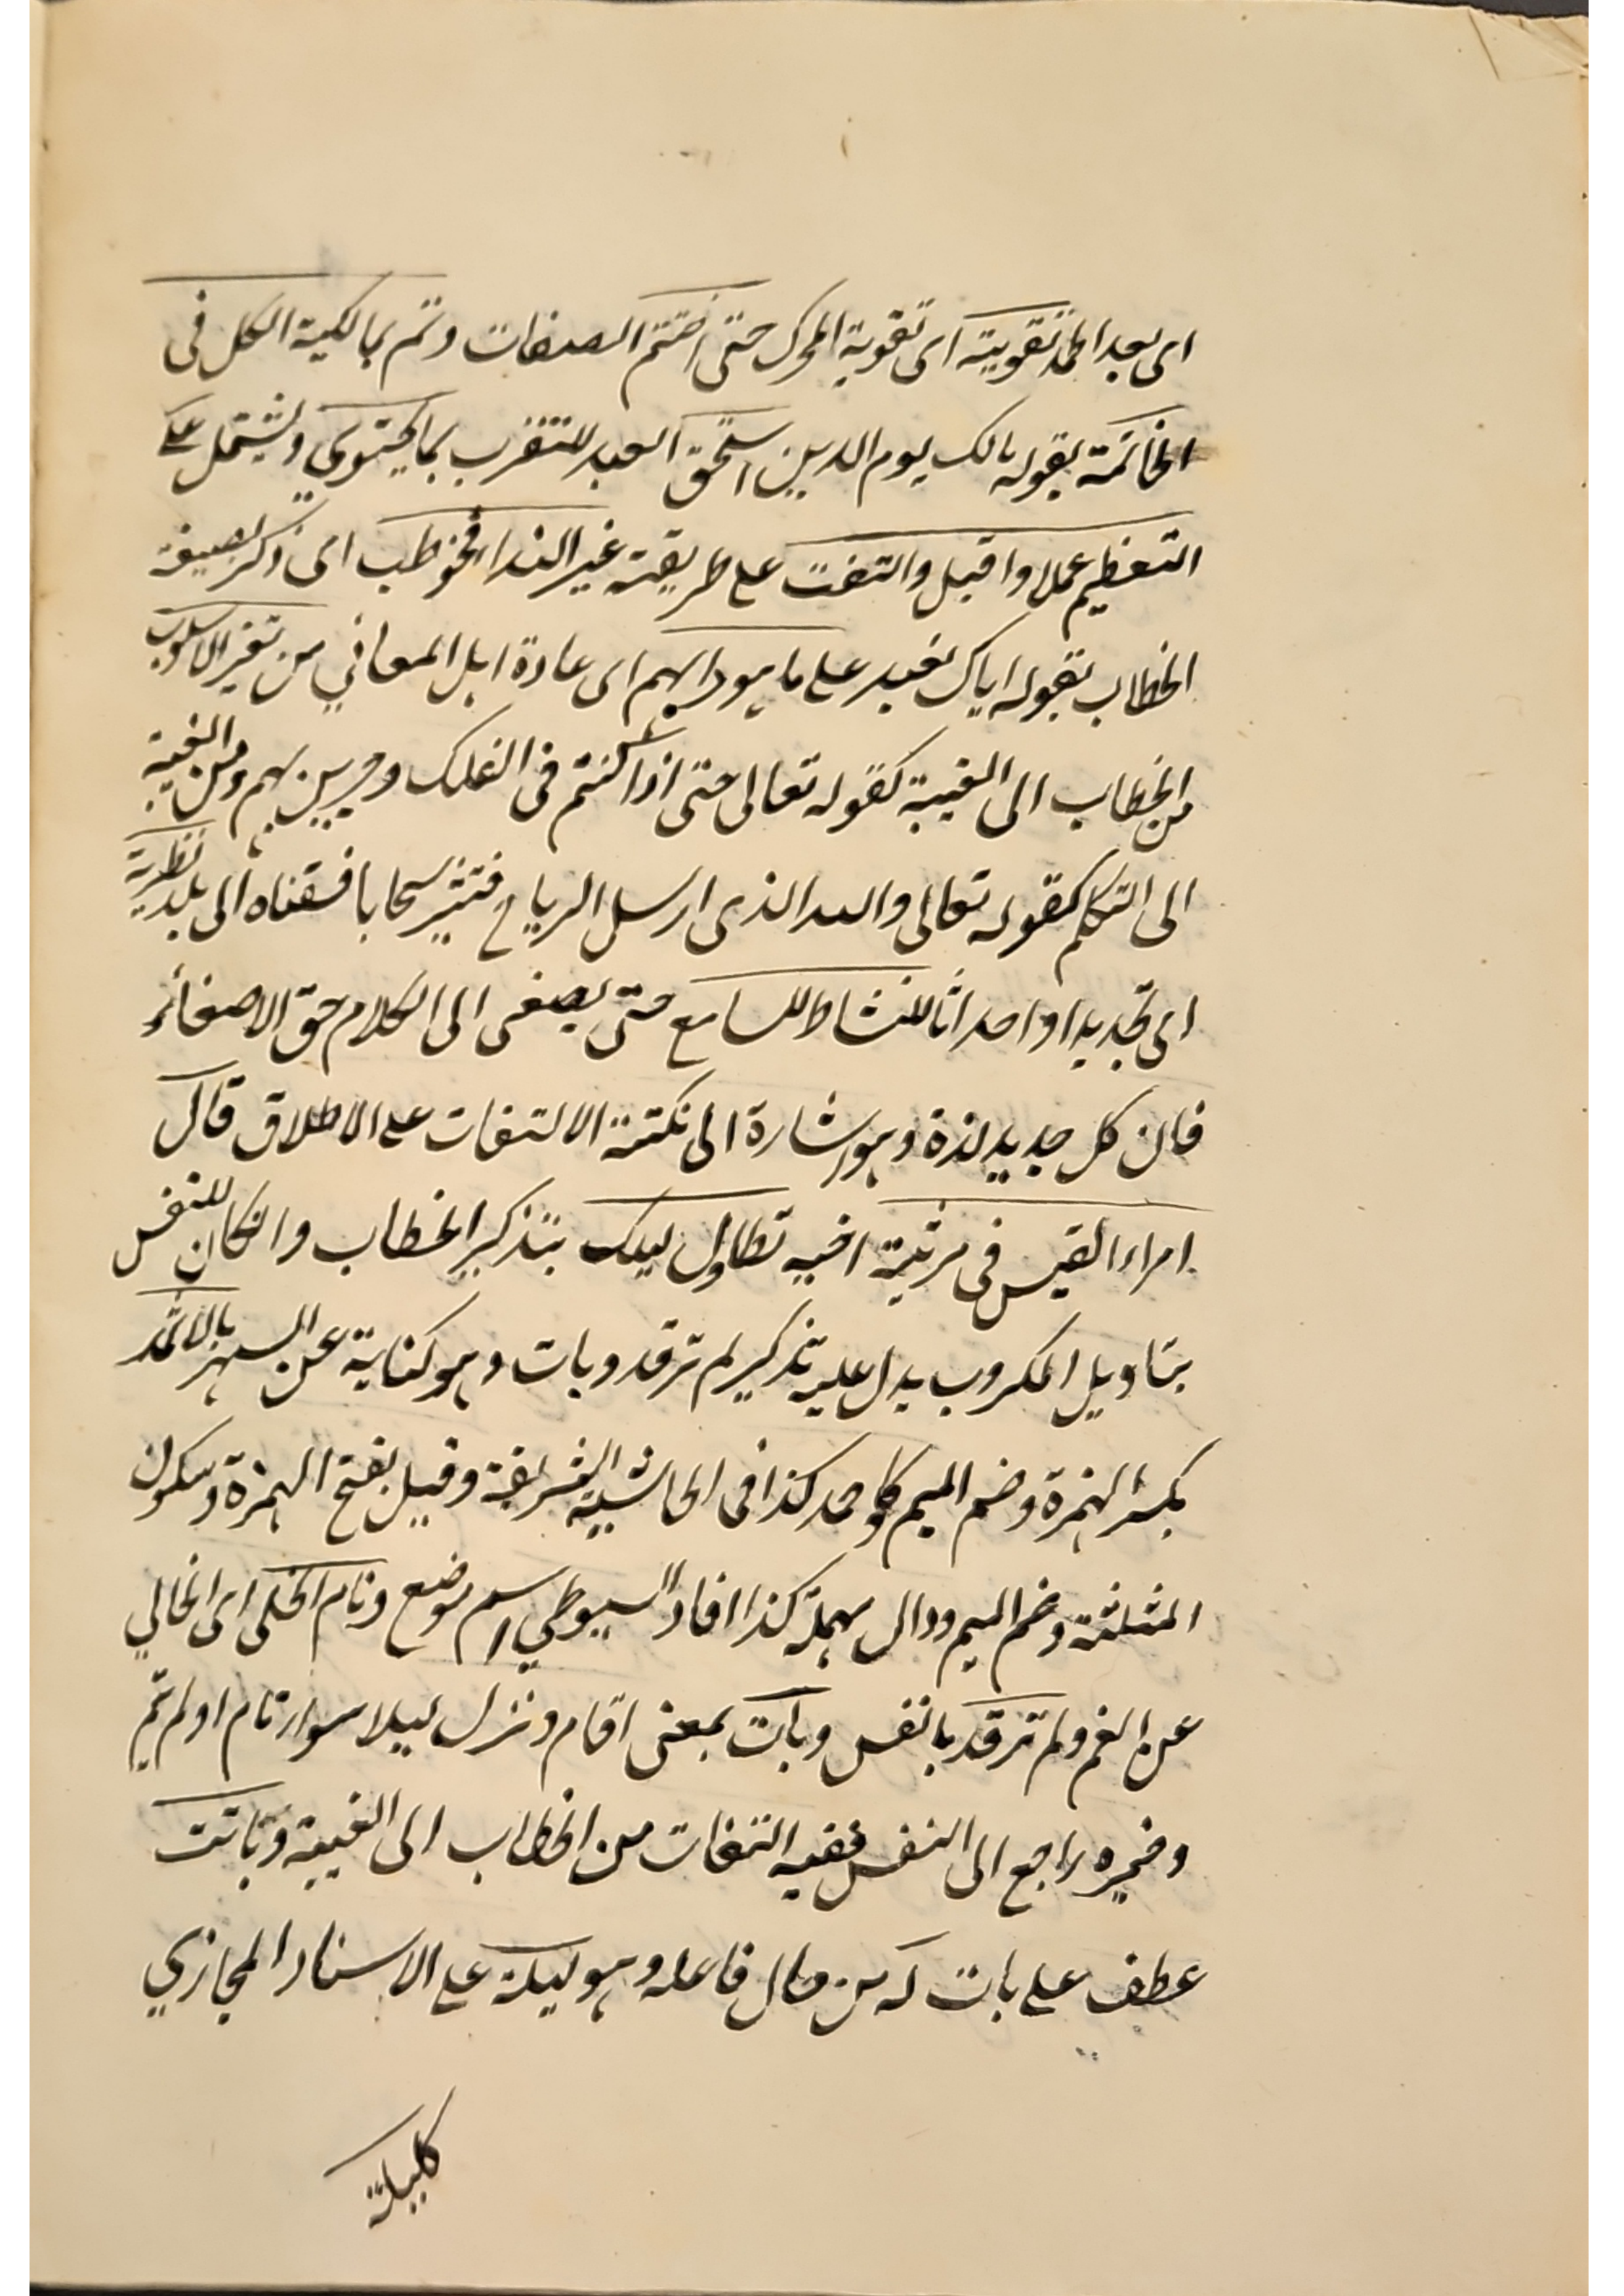 اى بعد الحمد تقويته اى تقوية المحرك حتى اختتم الصفات وتم بمالكية الكل فى
الخاتمة بقوله مالك يوم الدين استحق العبد للتقرب بما يحتوى ويشتمل على
التعظيم عملا واقبل والتفت على طريقة غير النداء فخوطب اى ذكر بصيغة
الخطاب بقوله اياك نعبد على ما هو دابهم اى عادة اهل المعاني من تغير الاسلوب
من الخطاب الى الغيبة كقوله تعالى حتى اذا كنتم فى الفلك وجرين بهم ومن الغيبة
الى التكلم كقوله تعالى والله الذى ارسل الرياح فتثير سحابا فسقناه الى بلد تطرية
اى تجديدا واحداثا للنشاط للسامع حتى يصغى الى الكلام حق الاصغاء
فان كل جديد لذة وهو اشارة الى نكتة الالتفات على الاطلاق قال
امراء القيس فى مرثية اخيه تطاول ليلك بتذكير الخطاب وان كان للنفس
بتاويل المكروب يدل عليه تذكير لم ترقد وبات وهو كناية عن السهر بالاثمد
بكسر الهمزة وضم الميم كذا فى الحاشية الشريفة وقيل بفتح الهمزة وسكون
المثلثة وضم الميم ودال مهملة كذا افاد السيوطي اسم موضع ونام الخلى اى الخالي
عن الغم ولم ترقد يا نفس وبات بمعنى اقام ونزل ليلا سواء نام او لم ينم
وضميره راجع الى النفس ففيه التفات من الخطاب الى الغيبة وباتت
عطف على بات له من حال فاعله وهو ليلة على الاسناد المجازي
كليلة